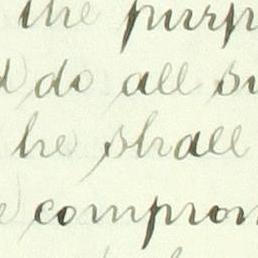 the purp
do all su
he shall
comprom